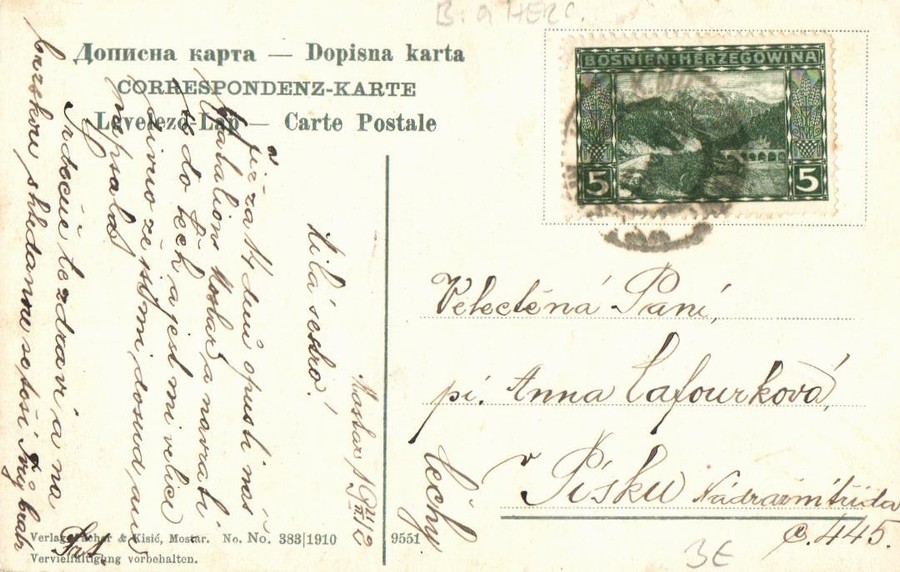 B. a HERC.
Дописна карта — Dopisna karta
CORRESPONDENZ-KARTE
Levelező-Lap — Carte Postale
BOSNIEN-HERZEGOWINA
5 5
Mostar
Milá sestro!
již za 14 dní opustí nás
batalion Mostar a navrátí
se do Čech a jest mi velice
divno že jsi mi dosud ani
nepsala.
Srdečně tě zdraví a na
brzské shledanne se těší Tvůj bratr
Velectěná Paní,
pí. Anna Lafourková,
v Písku Nádražní třída
č. 445.
Čechy
Verlag Pacher & Kisić, Mostar. No. No. 383|1910 9551
Vervielfältigung vorbehalten.
3E